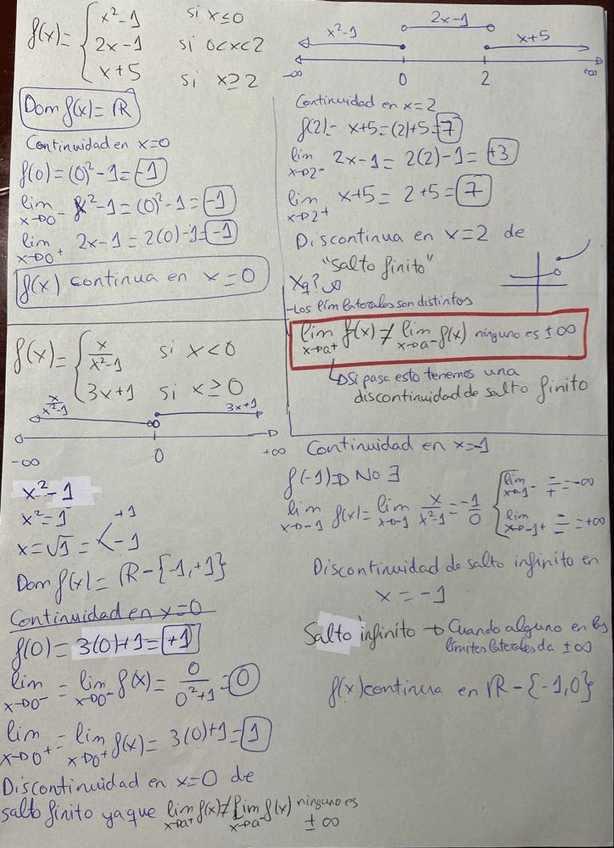 f(x)= { x²-1 si x≤0
2x-1 si 0<x<2
x+5 si x≥2
Dom f(x)=ℝ
Continuidad en x=0
f(0)=(0)²-1=-1
lim x→0⁻ x²-1=(0)²-1=-1
lim x→0⁺ 2x-1=2(0)-1=-1
f(x) continua en x=0
x²-1 2x-1 x+5
-∞ 0 2 +∞
Continuidad en x=2
f(2)= x+5=(2)+5=7
lim x→2⁻ 2x-1=2(2)-1=+3
lim x→2⁺ x+5=2+5=7
Discontinua en x=2 de
"salto finito"
Xq?
-Los lím laterales son distintos
lim x→a⁺ f(x)≠lim x→a⁻ f(x) ninguno es ±∞
↳Si pasa esto tenemos una
discontinuidad de salto finito
f(x)= { x/x²-1 si x<0
3x+1 si x≥0
x/x²-1 3x+1
-∞ 0 +∞
x²-1
x²=1
x=√1=< +1
-1
Dom f(x)=ℝ-{-1,+1}
Continuidad en x=0
f(0)=3(0)+1=+1
lim x→0⁻ = lim x→0⁻ f(x)= 0/0²+1=0
lim x→0⁺ = lim x→0⁺ f(x)=3(0)+1=1
Discontinuidad en x=0 de
salto finito ya que lim x→a⁺ f(x)≠lim x→a⁻ f(x) ninguno es
±∞
Continuidad en x=-1
f(-1)⇒ No ∃
lim x→-1 f(x)= lim x→-1 x/x²-1 = -1/0 { lim x→-1⁻ -/+ =-∞
lim x→-1⁺ -/- =+∞
Discontinuidad de salto infinito en
x=-1
Salto infinito → Cuando alguno en los
límites laterales da ±∞
f(x) continua en ℝ-{-1,0}